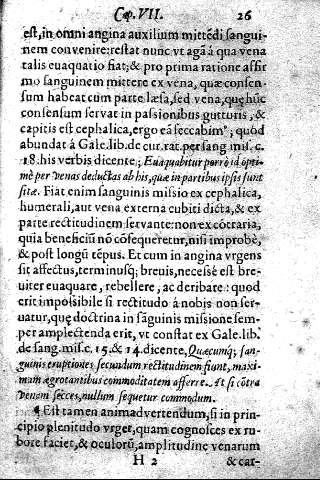 Cap. VII. 26
est, in omni angina auxilium mittēdi sangui-
nem convenire: restat nunc vt agā à qua vena
talis euaquatio fiat; & pro prima ratione assir
mo sanguinem mittere ex vena, quæ consen-
sum habeat cum parte læsa, sed vena, quę hūc
consensum servat in passionibus gutturis, &
capitis est cephalica, ergo eā seccabim⁹; quòd
abundat à Gale. lib. de cur. rat. per sang mis. c.
18. his verbis dicente; Euaquabitur porrò id opti-
mè per venas deductas ab his, quæ in partibus ipsis sunt
sitæ. Fiat enim sanguinis missio ex cephalica,
humerali, aut vena externa cubiti dicta, & ex
parte rectitudinem servante: non ex cōtraria,
quia beneficiū nō cōsequeretur, nisi improbè,
& post longū tēpus. Et cum in angina vrgens
sit affectus, terminusq; brevis, necessé est bre-
uiter euaquare, rebellere, ac deribare: quod
erit impossibile si rectitudo à nobis non ser-
uatur, quę doctrina in sāguinis missione sem-
per amplectenda erit, vt constat ex Gale. lib.
de sang. mis. c. 15. & 14. dicente, Quæcumq; san-
guinis eruptiones secundum rectitudinem fiunt, maxi-
mam ægrotantibus commoditatem afferre. At si cōtra
venam secces, nullum sequetur commodum.
¶ Est tamen animadvertendum, si in prin-
cipio plenitudo vrget, quam cognosces ex ru-
bore faciei, & oculorū, amplitudine venarum
H 2 & car-